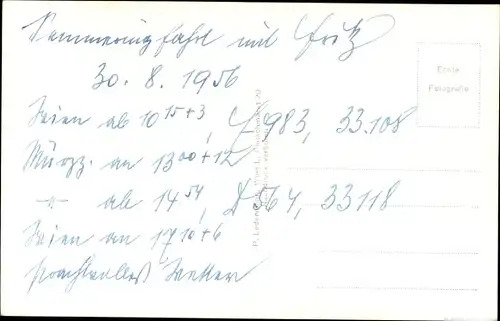 Semmeringfahrt mit Fritz
30. 8. 1956
Wien ab 10 15+3, E 983, 33.108
Mürzz. an 13 00+12
-"- ab 14 54, D 564, 33118
Wien an 17 10+6
prachtvollest Wetter
Echte
Fotografie